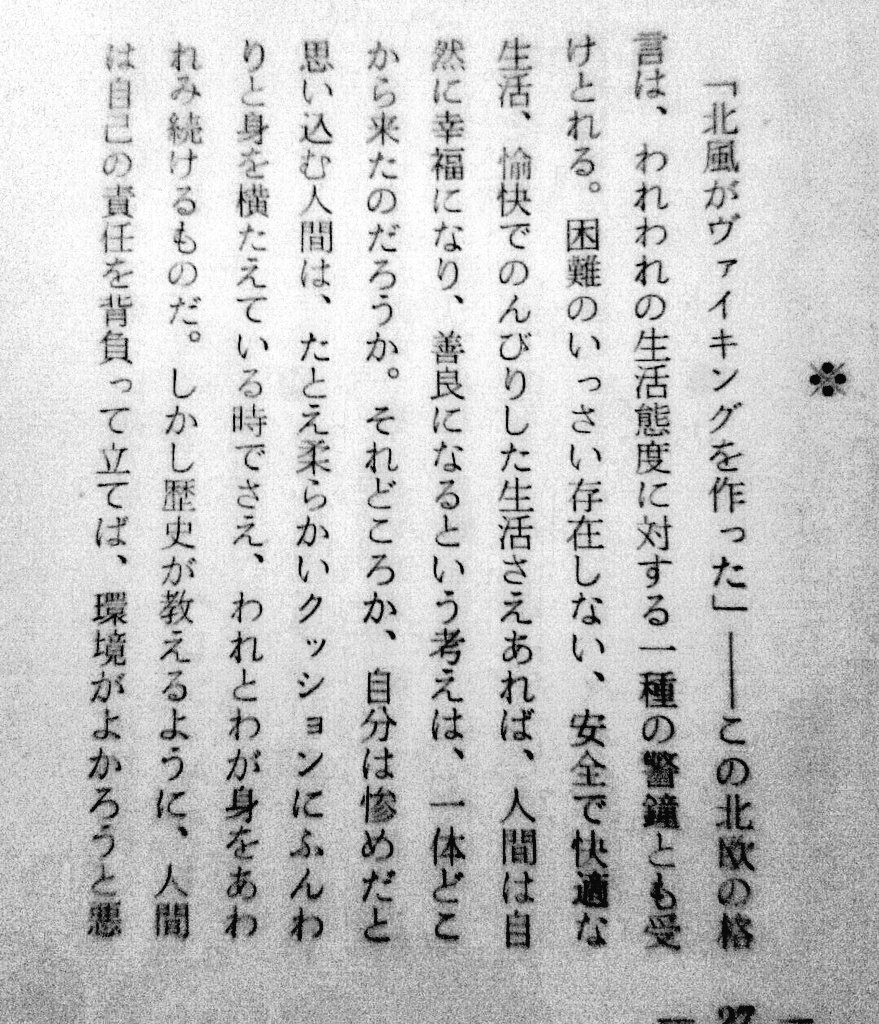 ※
「北風がヴァイキングを作った」――この北欧の格
言は、われわれの生活態度に対する一種の警鐘とも受
けとれる。困難のいっさい存在しない、安全で快適な
生活、愉快でのんびりした生活さえあれば、人間は自
然に幸福になり、善良になるという考えは、一体どこ
から来たのだろうか。それどころか、自分は惨めだと
思い込む人間は、たとえ柔らかいクッションにふんわ
りと身を横たえている時でさえ、われとわが身をあわ
れみ続けるものだ。しかし歴史が教えるように、人間
は自己の責任を背負って立てば、環境がよかろうと悪
— 27 —